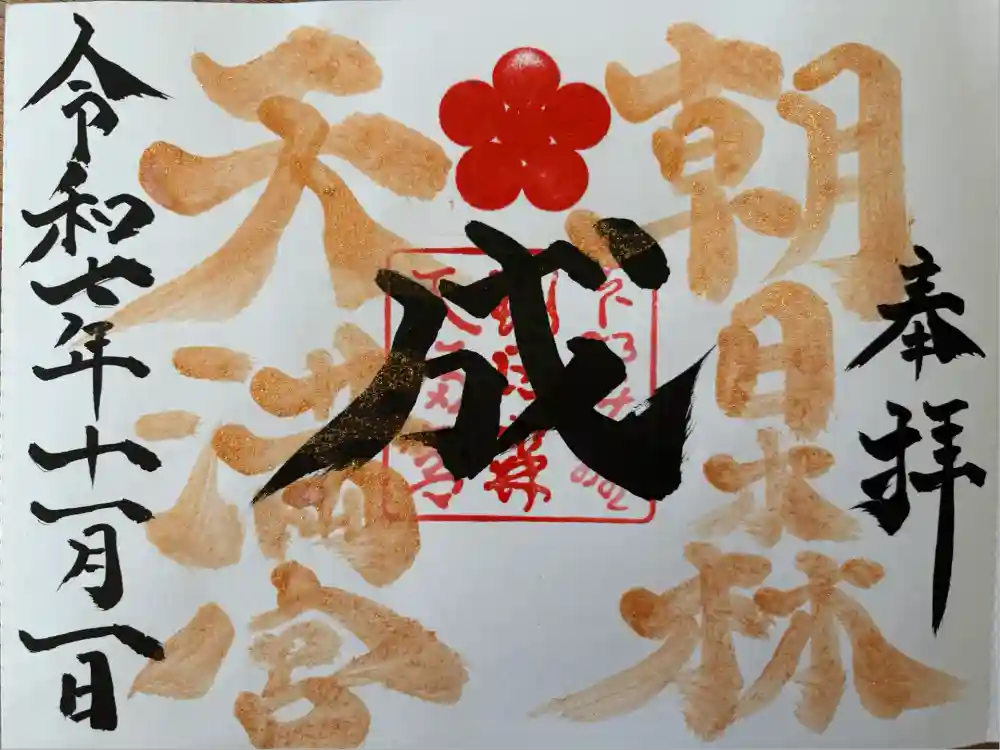 奉拝
朝日森
成
天満宮
令和七年十一月一日